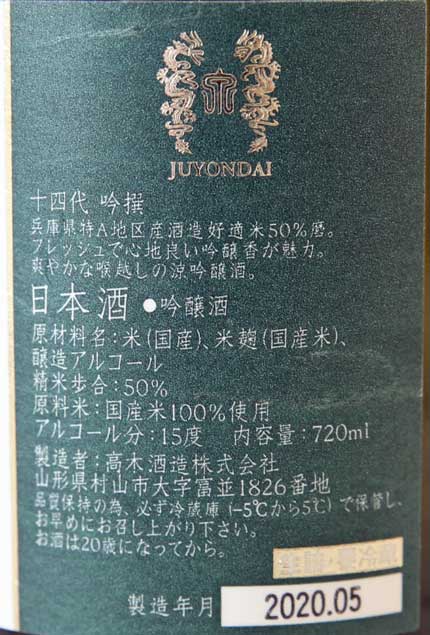 JUYONDAI
十四代 吟撰
兵庫県特A地区産酒造好適米50%磨。
フレッシュで心地良い吟醸香が魅力。
爽やかな喉越しの涼吟醸酒。
日本酒 ●吟醸酒
原材料名:米(国産)、米麹(国産米)、
醸造アルコール
精米歩合:50%
原料米:国産米100%使用
アルコール分:15度 内容量:720ml
製造者:高木酒造株式会社
山形県村山市大字富並1826番地
品質保持の為、必ず冷蔵庫(-5℃から5℃)で保管し、
お早めにお召し上がり下さい。
お酒は20歳になってから。
生詰・要冷蔵
製造年月 2020.05